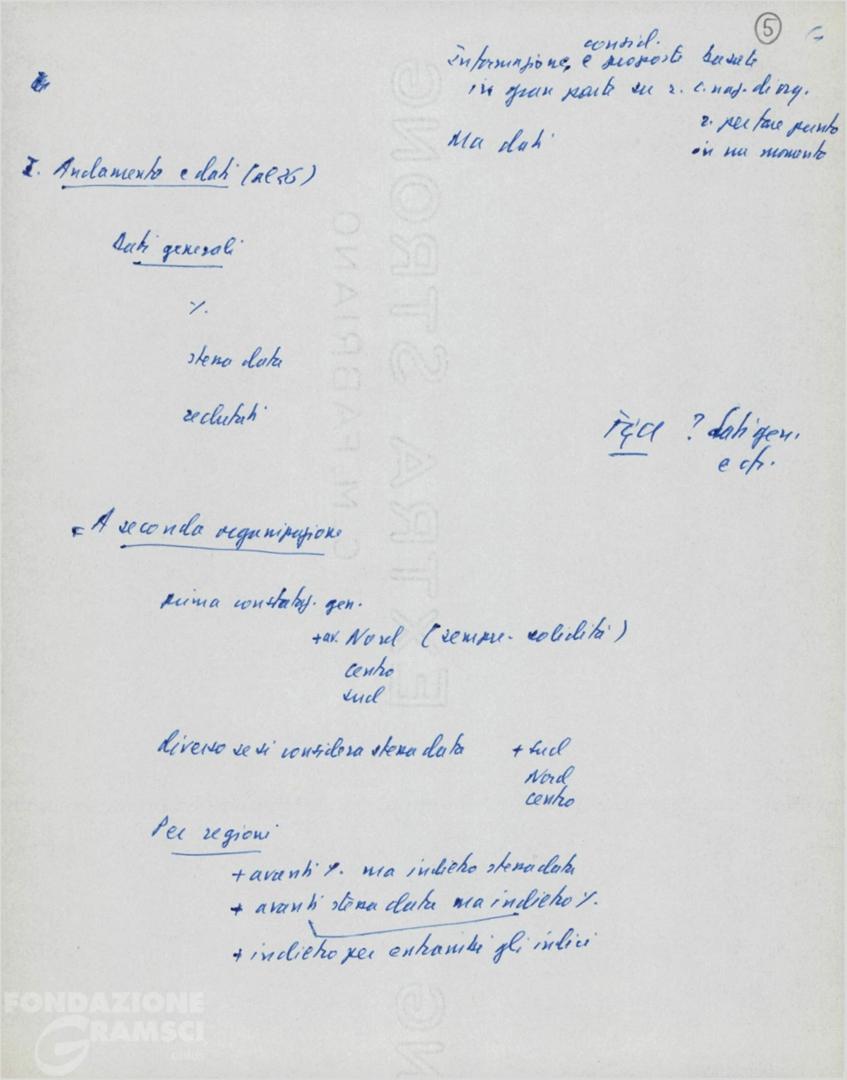 5
consid.
Informazione, e proposte basate
in gran parte su r. c. naz. di org.
r. per fare punto
in un momento
Ma dati
I. Andamento e dati (al 26)
Dati generali
%.
stessa data
reclutati
FGCI ? dati gen.
e
= A seconda organizzazione
prima constataz. gen.
+ av. Nord (sempre - solidità)
centro
sud
diverso se si considera stessa data + Sud
Nord
centro
Per regioni
+ avanti %. ma indietro stessa data
+ avanti stessa data ma indietro %.
+ indietro per entrambi gli indici
EXTRA STRONG
C. M. FABRIANO
FONDAZIONE
GRAMSCI
onlus